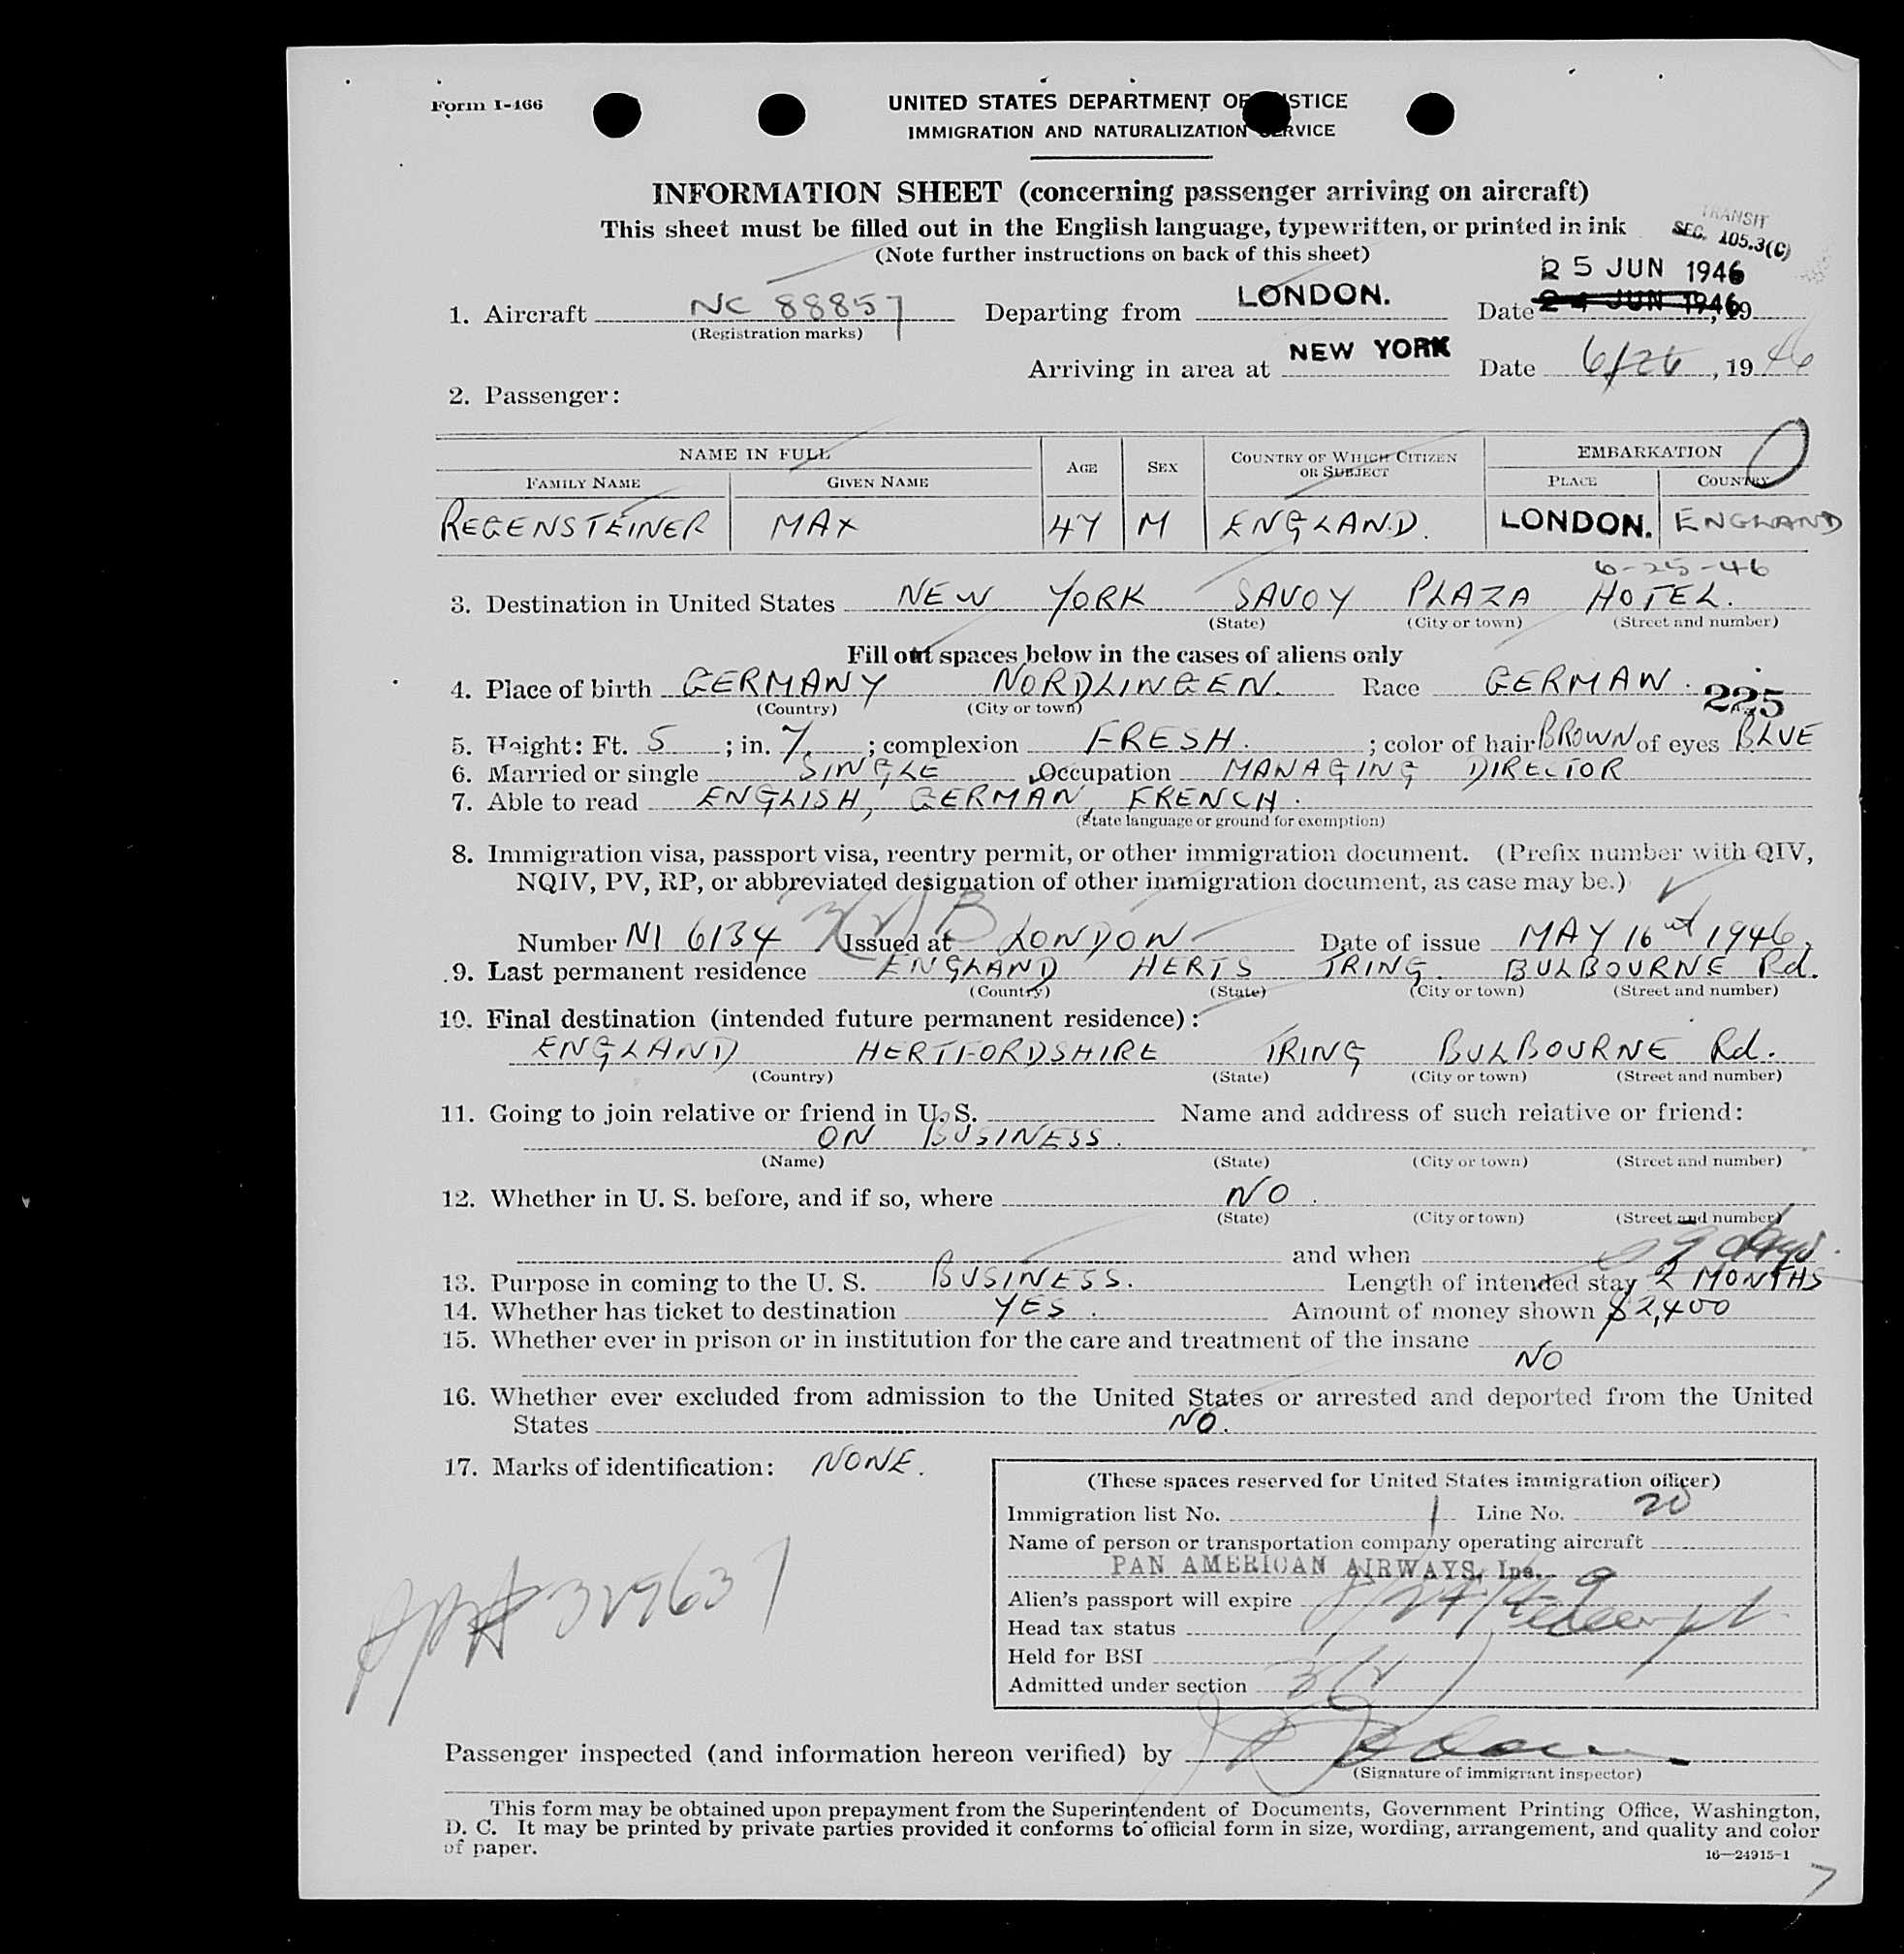 Form I-466
UNITED STATES DEPARTMENT OF JUSTICE
IMMIGRATION AND NATURALIZATION SERVICE
INFORMATION SHEET (concerning passenger arriving on aircraft)
This sheet must be filled out in the English language, typewritten, or printed in ink
(Note further instructions on back of this sheet)
TRANSIT
SEC. 105.3(C)
25 JUN 1946
1. Aircraft NC 88857 Departing from LONDON. Date 24 JUN 1946, 19
(Registration marks)
Arriving in area at NEW YORK Date 6/26, 1946
2. Passenger:
NAME IN FULL AGE SEX COUNTRY OF WHICH CITIZEN OR SUBJECT EMBARKATION
FAMILY NAME GIVEN NAME PLACE COUNTRY
REGENSTEINER MAX 47 M ENGLAND. LONDON. ENGLAND
6-25-46
3. Destination in United States NEW YORK SAVOY PLAZA HOTEL.
(State) (City or town) (Street and number)
Fill out spaces below in the cases of aliens only
4. Place of birth GERMANY NORDLINGEN. Race GERMAN. 225
(Country) (City or town)
5. Height: Ft. 5; in. 7.; complexion FRESH.; color of hair BROWN of eyes BLUE
6. Married or single SINGLE Occupation MANAGING DIRECTOR
7. Able to read ENGLISH, GERMAN, FRENCH.
(State language or ground for exemption)
8. Immigration visa, passport visa, reentry permit, or other immigration document. (Prefix number with QIV,
NQIV, PV, RP, or abbreviated designation of other immigration document, as case may be.)
3(2) B
Number NI 6134 Issued at LONDON Date of issue MAY 16 1946.
9. Last permanent residence ENGLAND HERTS TRING. BULBOURNE Rd.
(Country) (State) (City or town) (Street and number)
10. Final destination (intended future permanent residence):
ENGLAND HERTFORDSHIRE TRING BULBOURNE Rd.
(Country) (State) (City or town) (Street and number)
11. Going to join relative or friend in U. S. Name and address of such relative or friend:
ON BUSINESS.
(Name) (State) (City or town) (Street and number)
12. Whether in U. S. before, and if so, where NO.
(State) (City or town) (Street and number)
and when days.
13. Purpose in coming to the U. S. BUSINESS. Length of intended stay 2 MONTHS
14. Whether has ticket to destination YES. Amount of money shown $2,400
15. Whether ever in prison or in institution for the care and treatment of the insane
NO
16. Whether ever excluded from admission to the United States or arrested and deported from the United
States NO.
17. Marks of identification: NONE.
(These spaces reserved for United States immigration officer)
Immigration list No. 1 Line No. 20
Name of person or transportation company operating aircraft
PAN AMERICAN AIRWAYS, Inc.
Alien's passport will expire
Head tax status
Held for BSI
Admitted under section 3(2)
329637
Passenger inspected (and information hereon verified) by
(Signature of immigrant inspector)
This form may be obtained upon prepayment from the Superintendent of Documents, Government Printing Office, Washington,
D. C. It may be printed by private parties provided it conforms to official form in size, wording, arrangement, and quality and color
of paper.
16—24915-1
7